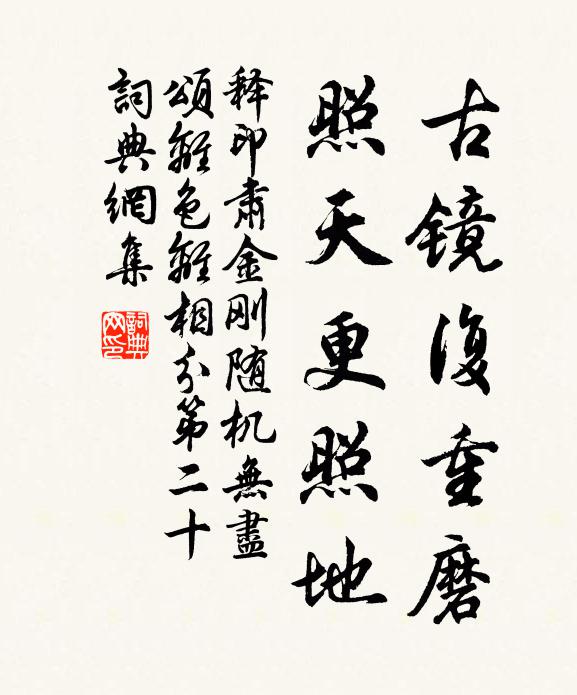 古镜復重磨
照天更照地
释印肃金刚随机無盡
頌離色離相分第二十
詞典網集
詞典网印